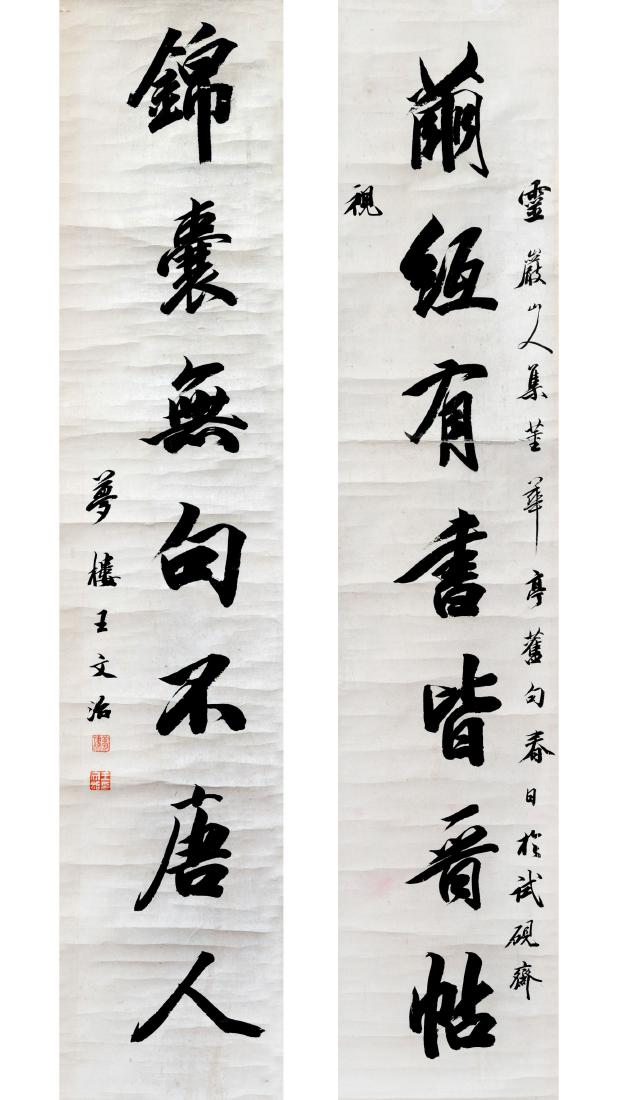 靈巖山人集董華亭舊句春日於試硯齋
繭紙有書皆晉帖
視
錦囊無句不唐人
夢樓王文治